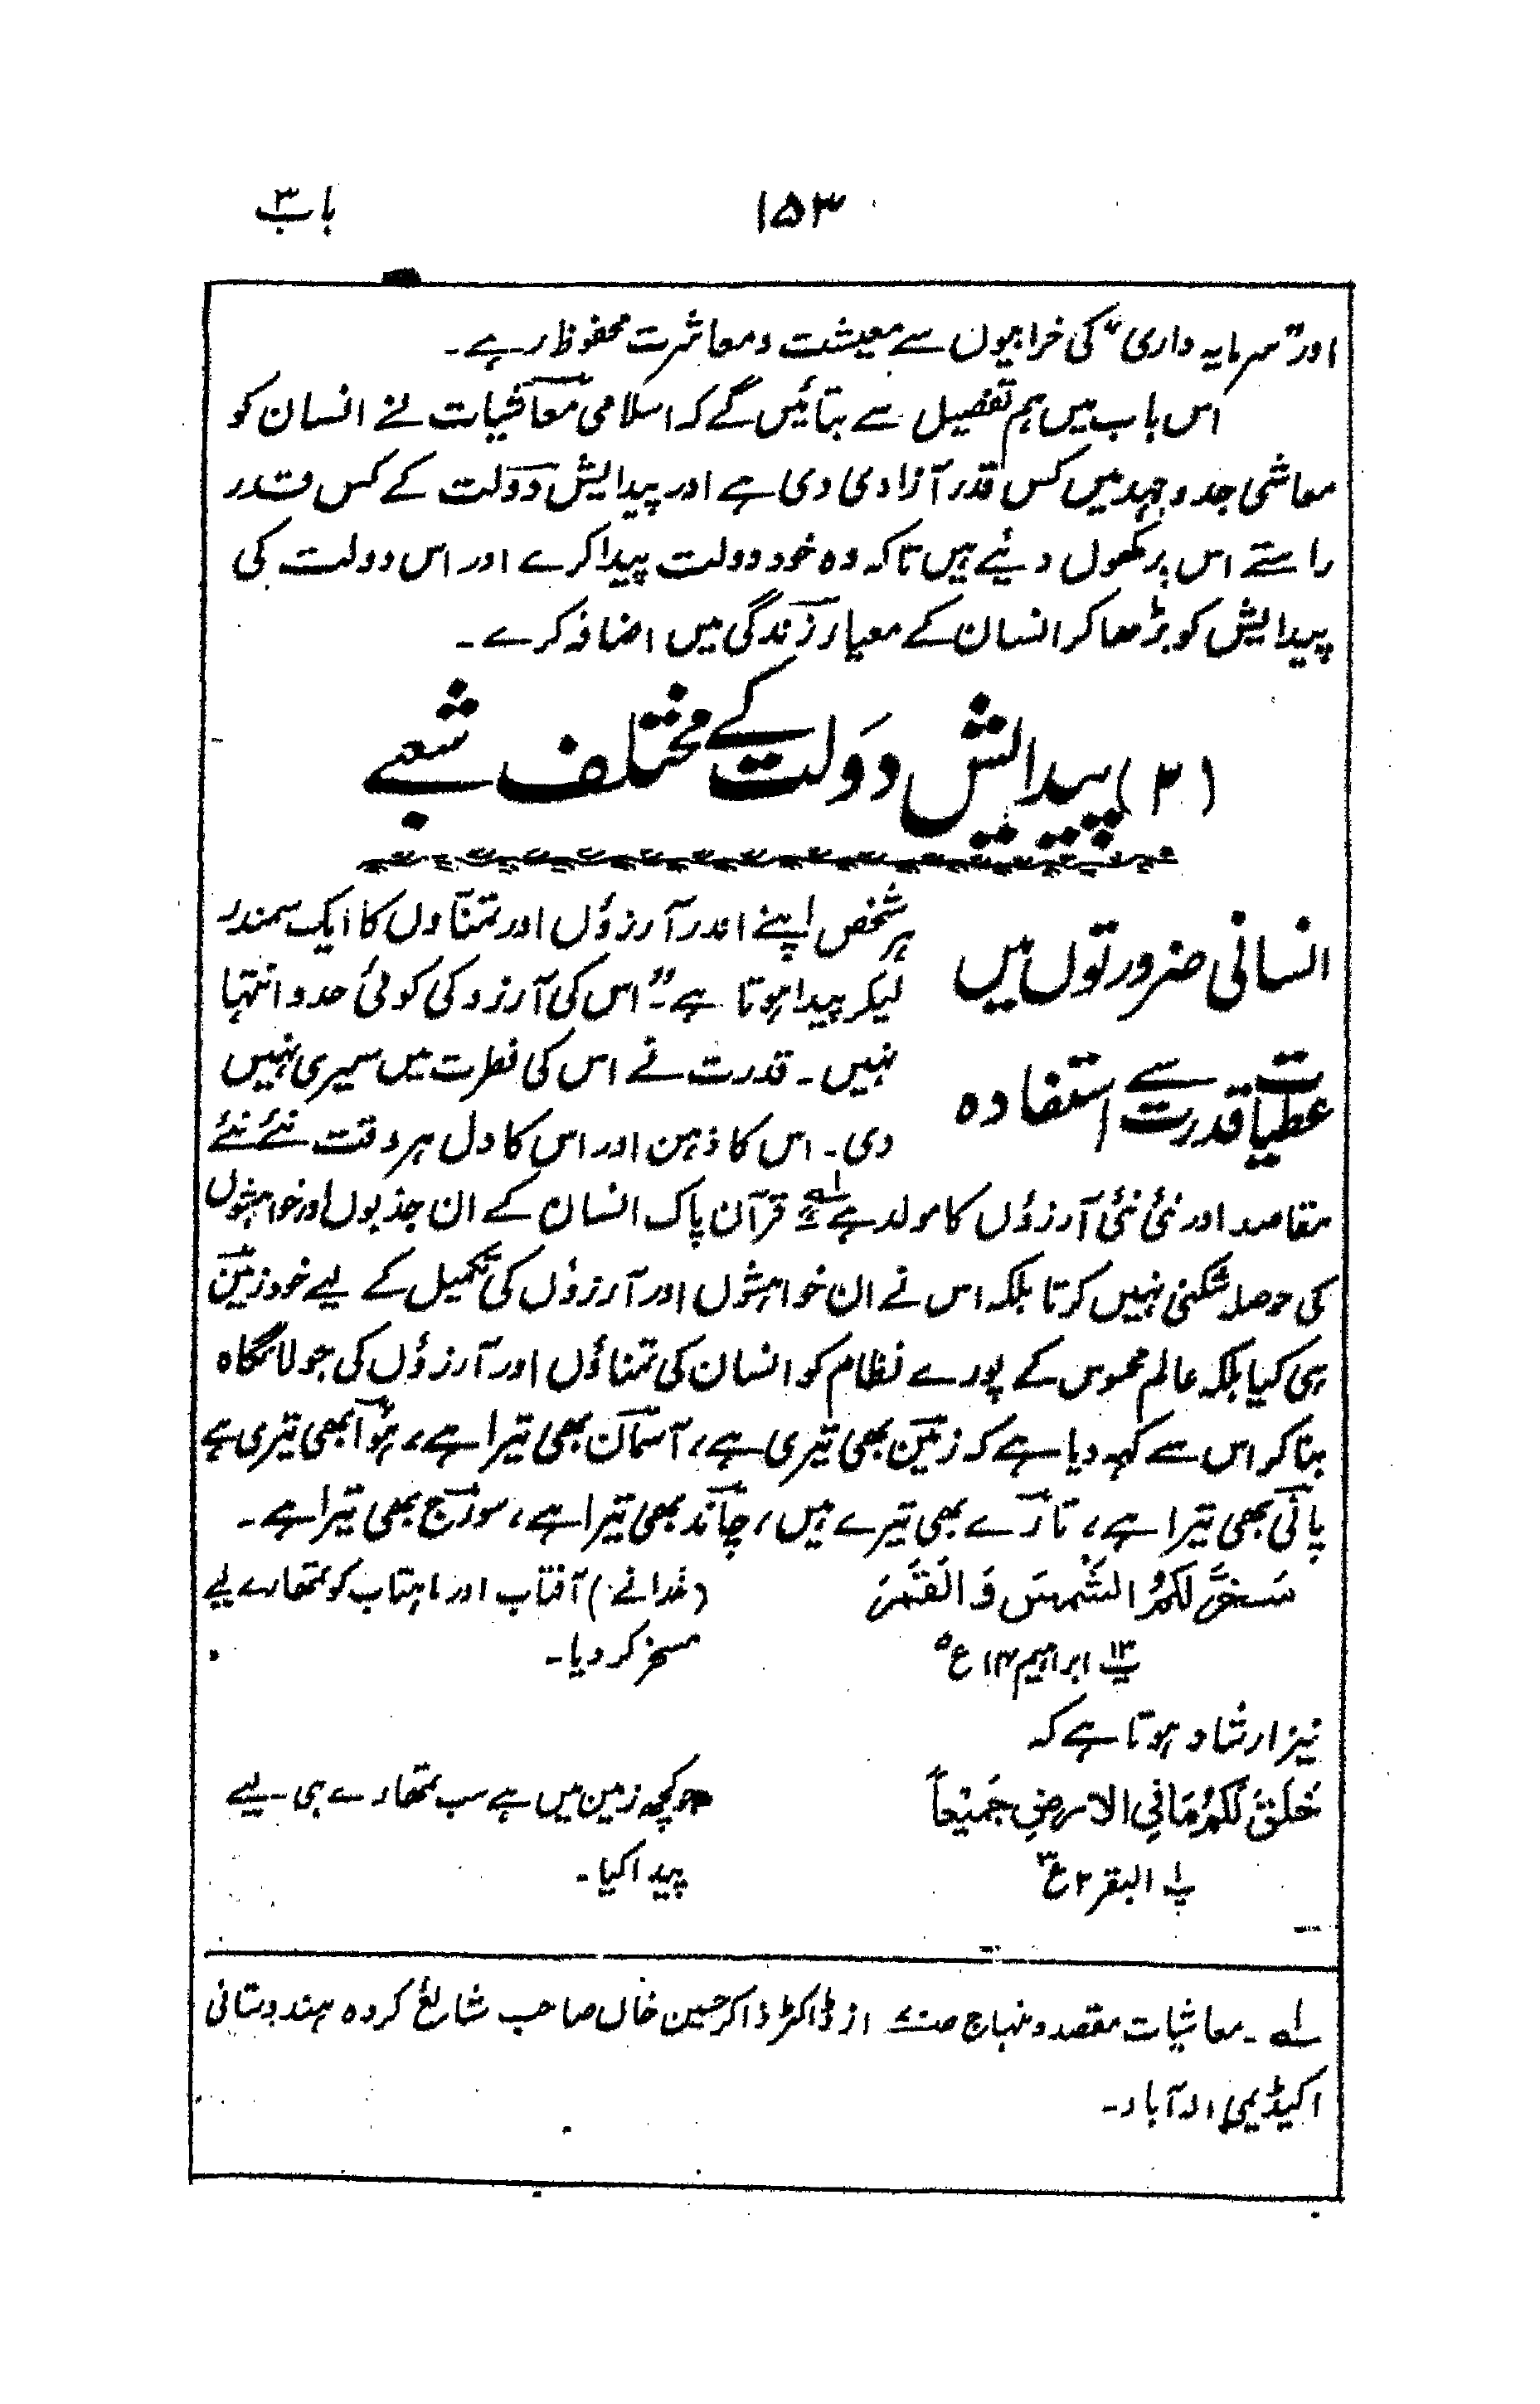 ۱۵۳
باب ۳
اور "سرمایہ داری" کی خرابیوں سے معیشت و معاشرت محفوظ رہے۔
اس باب میں ہم تفصیل سے بتائیں گے کہ اسلامی معاشیات نے انسان کو
معاشی جدوجہد میں کس قدر آزادی دی ہے اور پیدایش دولت کے کس قدر
راستے اس پر کھول دئیے ہیں تاکہ وہ خود دولت پیدا کرے اور اس دولت کی
پیدایش کو بڑھا کر انسان کے معیار زندگی میں اضافہ کرے۔
(۲) پیدایش دولت کے مختلف شعبے
انسانی ضرورتوں میں
عطیات قدرت سے استفادہ
ہر شخص اپنے اندر آرزوؤں اور تمناوں کا ایک سمندر
لیکر پیدا ہوتا ہے۔ "اس کی آرزو کی کوئی حد و انتہا
نہیں۔ قدرت نے اس کی فطرت میں سیری نہیں
دی۔ اس کا ذہن اور اس کا دل ہر وقت نئے نئے
مقاصد اور نئی نئی آرزوؤں کا مولد ہے" لہ قرآن پاک انسان کے ان جذبوں اور خواہشوں
کی حوصلہ شکنی نہیں کرتا بلکہ اس نے ان خواہشوں اور آرزوؤں کی تکمیل کے لیے خود زمین
ہی کیا بلکہ عالم محسوس کے پورے نظام کو انسان کی تمناؤں اور آرزوؤں کی جولانگاہ
بنا کر اس سے کہہ دیا ہے کہ زمین بھی تیری ہے، آسمان بھی تیرا ہے، ہوا بھی تیری ہے
پانی بھی تیرا ہے، تارے بھی تیرے ہیں، چاند بھی تیرا ہے، سورج بھی تیرا ہے۔
سَخَّرَ لَکُمُ الشَّمْسَ وَالْقَمَرَ
پ۱۳ ابراہیم ۱۴ ع ۵
(خدا نے) آفتاب اور ماہتاب کو تمھارے لیے
مسخر کر دیا۔
نیز ارشاد ہوتا ہے کہ
خَلَقَ لَکُمْ مَا فِی الارضِ جَمِیْعاً
پ۱ البقر ۲ ع ۳
جو کچھ زمین میں ہے سب تمھارے ہی لیے
پیدا کیا۔
لہ۔ معاشیات مقصد و منہاج از ڈاکٹر ذاکر حسین خاں صاحب شائع کردہ ہندوستانی
اکیڈیمی الہ آباد۔